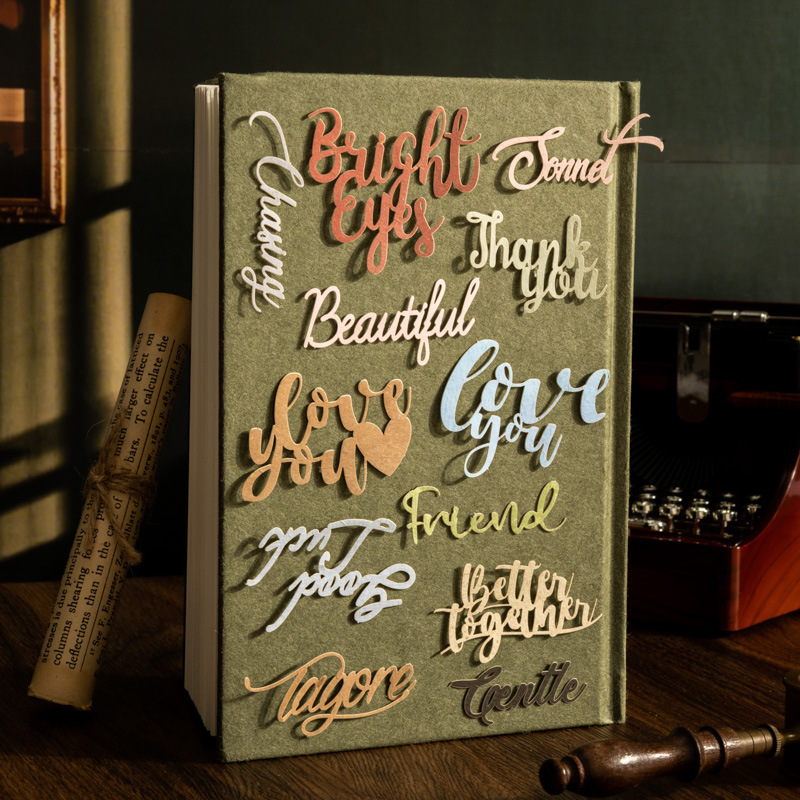 Chasing
Bright
Eyes
Sonnet
Thank
you
Beautiful
love
you
love
you
Friend
Good
Luck
Better
together
Tagore
Gentle
the case of latticed
much larger effect on
bars. To calculate the
stresses is due principally to the
columns shearing
deflections than in the case of